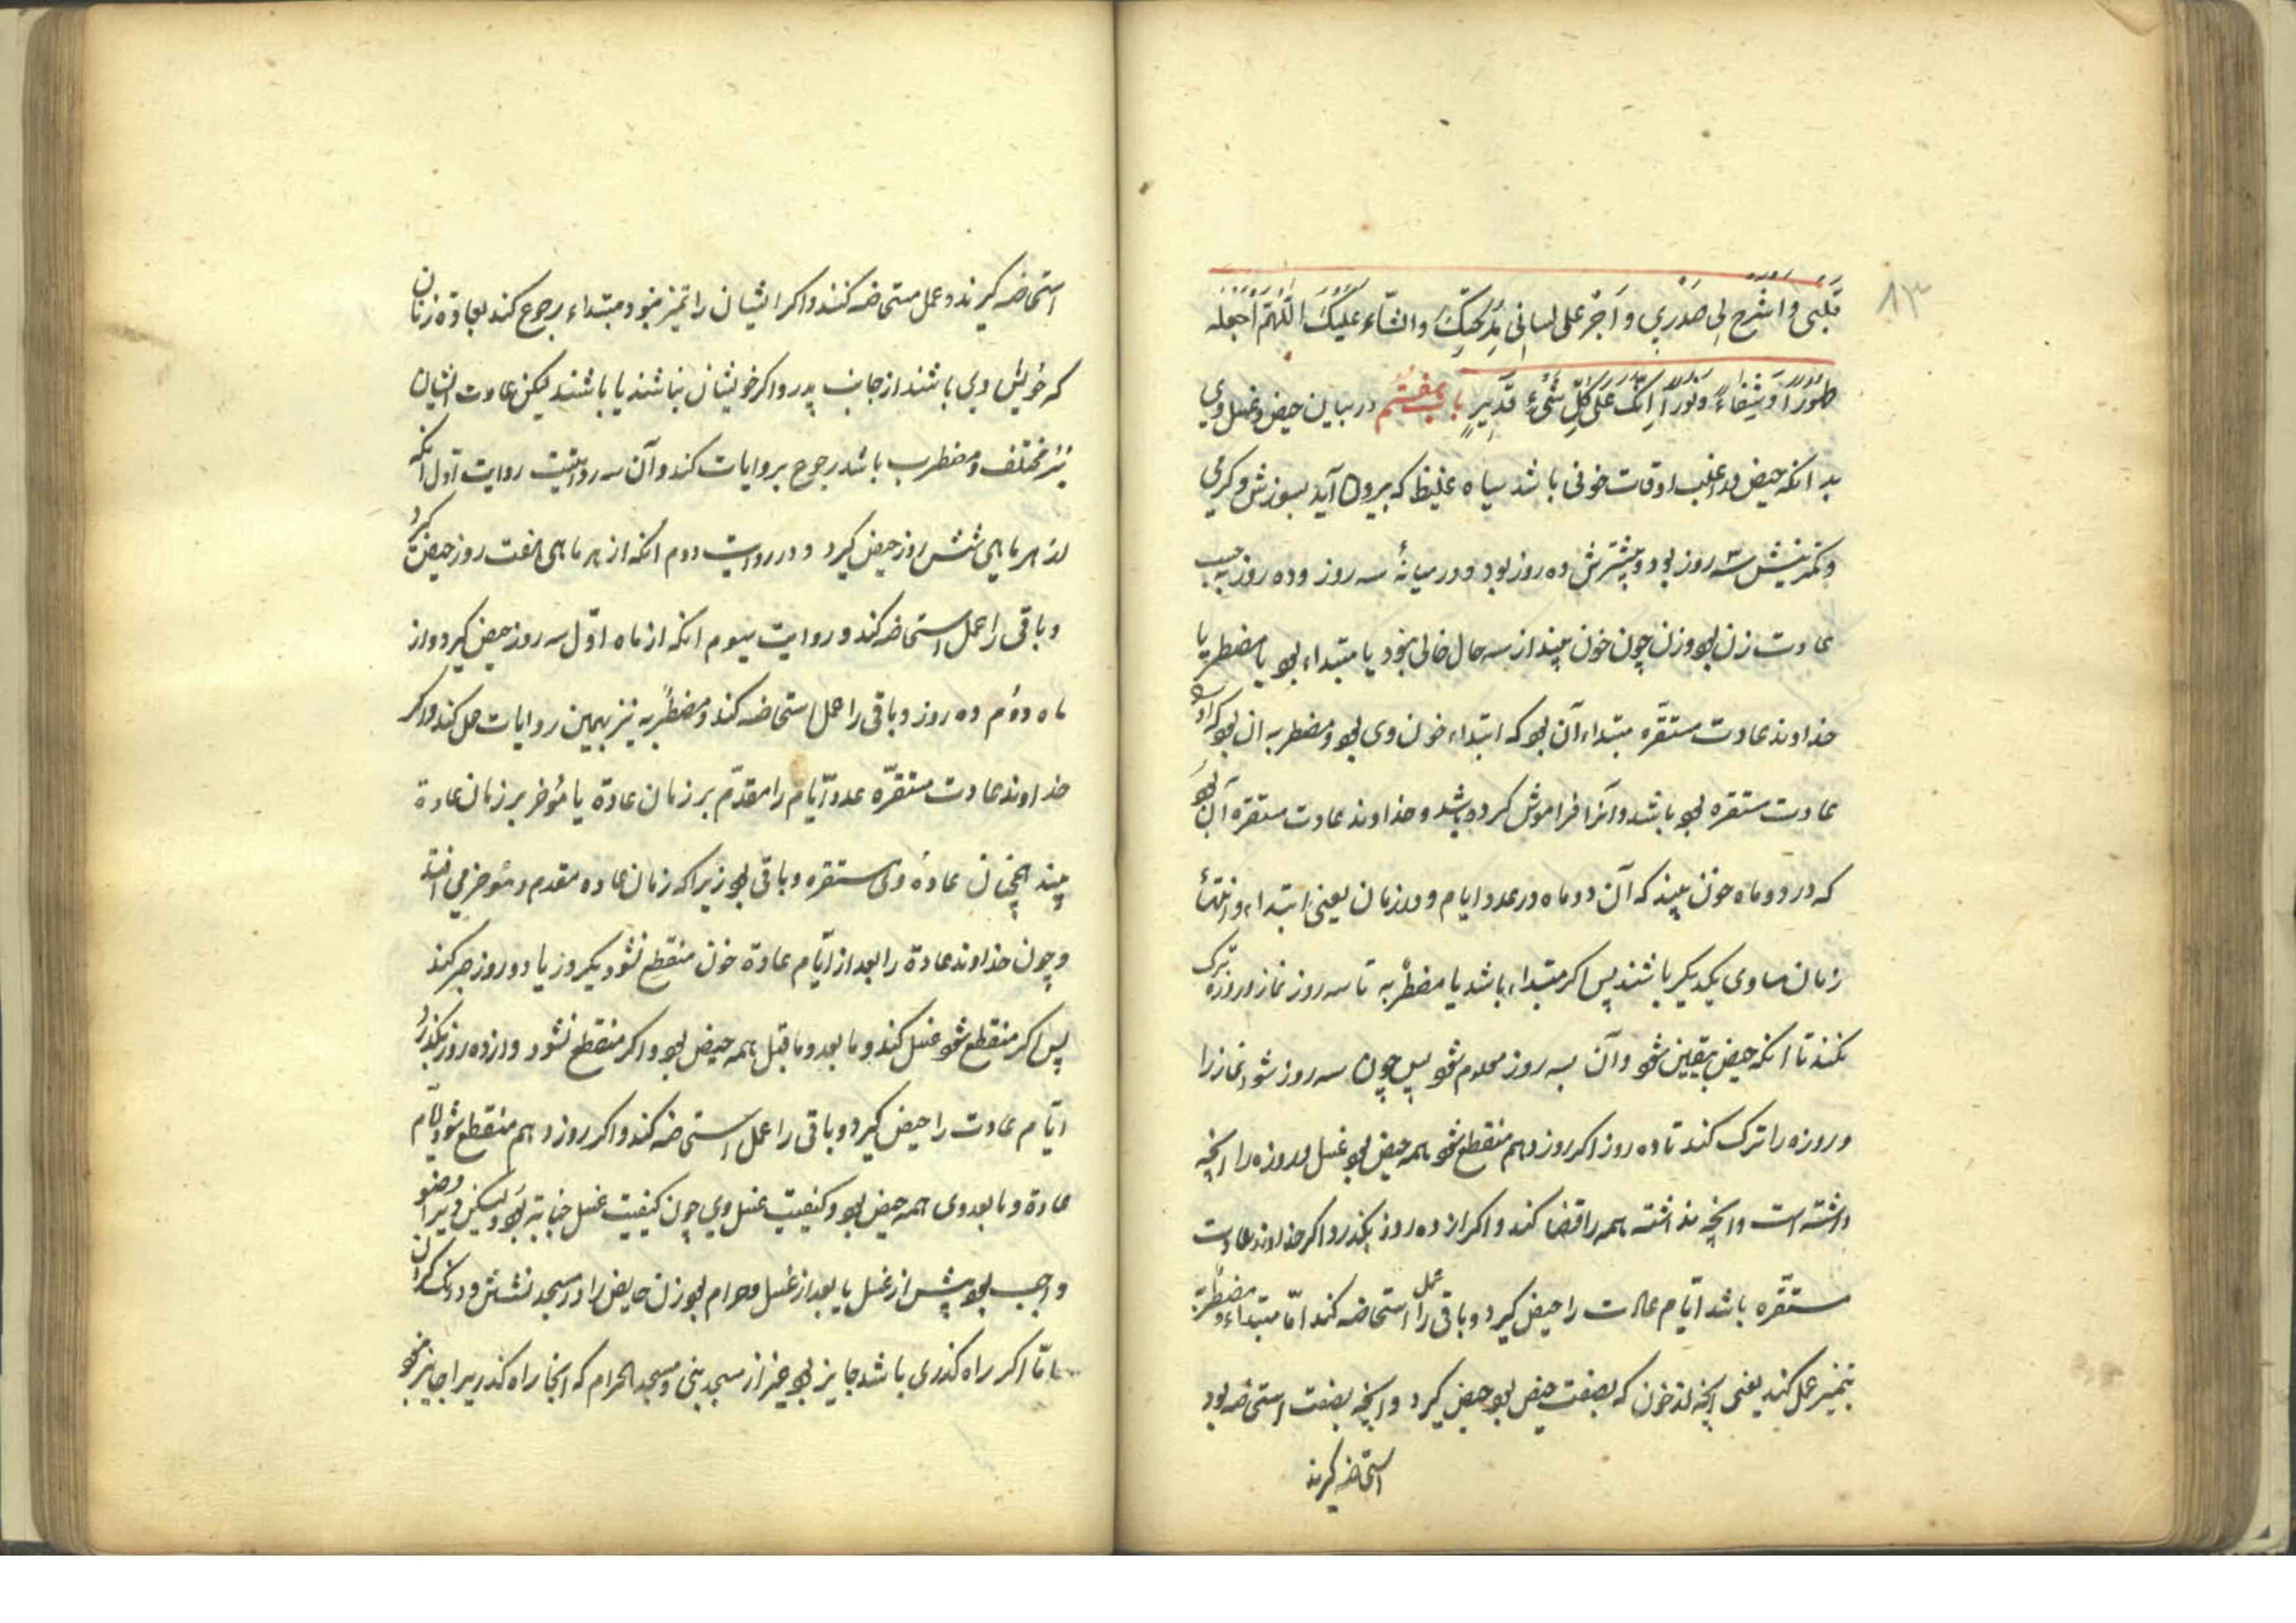 ۸۳
قَلْبِی وَاشْرَحْ لِی صَدْرِی وَاَجْرِ عَلی لِسانِی مِدْحَتِکَ وَالثَّناءَ عَلَیْکَ اَللّهُمَّ اجْعَلْهُ
طَهُوراً وَشِفاءً وَنُوراً اِنَّکَ عَلی کُلِّ شَیْءٍ قَدِیرٍ باب هفتم در بیان حیض و غسل وی
بدانکه حیض در اغلب اوقات خونی باشد سیاه غلیظ که بیرون آید بسوزش و گرمی
و کمترینش سه روز بود و بیشترش ده روز بود و در میانهٔ سه روز و ده روز به حسب
عادت زن بود و زن چون خون بیند از سه حال خالی نبود یا مبتداء بود یا مضطربه یا
خداوند عادت مستقرّه مبتداء آن بود که ابتداء خون وی بود و مضطربه ان بود که او را
عادت مستقره بود باشد و آنرا فراموش کرده باشد و خداوند عادت مستقره آن بود
که در دو ماه خون بیند که آن دو ماه در عدد ایام و در زمان یعنی ابتداء و انتهاء
زمان مساوی یکدیگر باشند پس اگر مبتداء باشد یا مضطربه تا سه روز نماز و روزه ترک
نکند تا آنکه حیض بیقین شود و آن بسه روز معلوم شود پس چون سه روز شود نماز را
و روزه را ترک کند تا ده روز اگر روز دهم منقطع شود همه حیض بود غسل و روزه را آنچه
داشته است و آنچه نداشته همه را قضا کند و اگر از ده روز بگذرد اگر خداوند عادت
مستقّره باشد ایّام عادت را حیض گیرد و باقی را عمل استحاضه کند امّا مبتداء و مضطربة
بتمیز عمل کند یعنی آنچه از خون که بصفت حیض بود حیض گیرد و آنچه بصفت استحاضه بود
استحاضه گیرند
استحاضه گیرند و عمل مستحاضه کنند و اگر ایشان را تمیز نبود مبتداء رجوع کند بعادة زنان
که خویش وی باشند از جانب پدر و اگر خویشان نباشند یا باشند لیکن عادت ایشان
نیز مختلف و مضطرب باشد رجوع بروایات کند و آن سه روایتست روایت اول آنکه
از هر ماهی شش روز حیض گیرد و در روایت دوم آنکه از هر ماهی هفت روز حیض گیرد
و باقی را عمل استحاضه کند و روایت سیوم آنکه از ماه اوّل سه روز حیض گیرد و از
ماه دوم ده روز و باقی را عمل استحاضه کند و مضطربه نیز بهمین روایات عمل کند و اگر
خداوند عادت مستقرّه عدد ایّام را مقدّم بر زمان عادة یا مؤخر بر زمان عادة
بیند همچنان عادهٔ وی مستقره و باقی بود زیرا که زمان عاده مقدم و مؤخر می افتد
و چون خداوند عادة را بعد از ایّام عادة خون منقطع نشود یکروز یا دو روز صبر کند
پس اگر منقطع شود غسل کند و ما بعد و ما قبل همه حیض بود و اگر منقطع نشود و از ده روز بگذرد
ایّام عادت را حیض گیرد و باقی را عمل استحاضه کند و اگر روز دهم منقطع شود ایّام
عادة و ما بعد وی همه حیض بود و کیفیت غسل وی چون کیفیت غسل جنابة بود ولیکن ویرا وضو
واجب بود پیش از غسل یا بعد از غسل و حرام بود زن حایض را در مسجد نشستن و درنک کردن
امّا اگر راه گذری باشد جایز بود غیر از مسجد نبی و مسجد الحرام که آنجا راه گذر ویرا جایز نبود